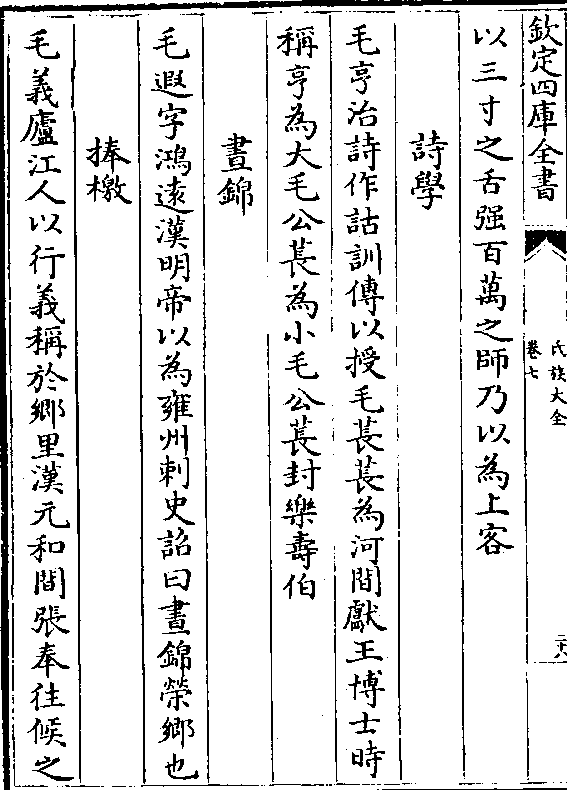 欽定四庫全書
氏族大全
卷七
二六
以三寸之舌强百萬之師乃以為上客
詩學
毛亨治詩作詁訓傳以授毛萇萇為河間獻王博士時
稱亨為大毛公萇為小毛公萇封樂壽伯
晝錦
毛遐字鴻逺漢明帝以為雍州刺史詔曰晝錦榮鄉也
捧檄
毛義廬江人以行義稱於鄉里漢元和間張奉往候之